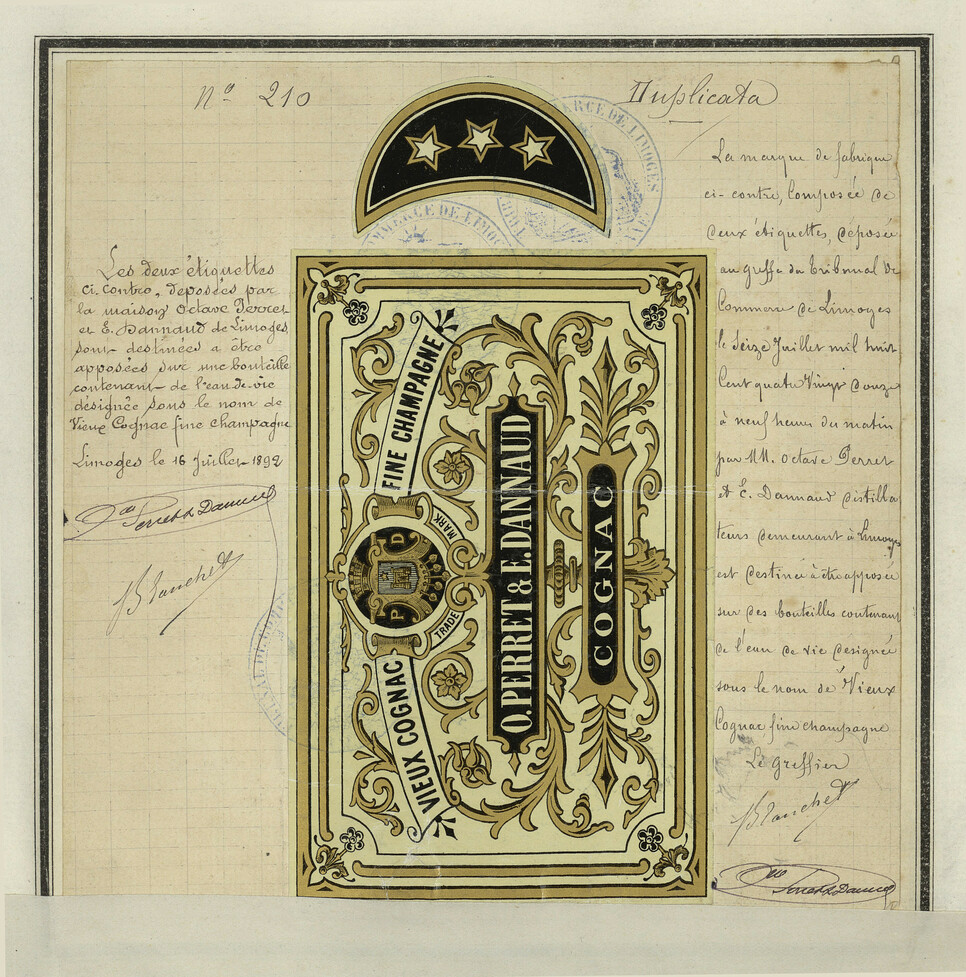 Nº 210
Duplicata
Les deux étiquettes
ci-contre, déposées par
la maison Octave Perret
et E. Dannaud de Limoges,
sont destinées a être
apposées sur une bouteille
contenant de l'eau de vie
désignée sous le nom de
Vieux Cognac fine champagne
Limoges le 16 Juillet 1892
Perret & Dannaud
Blanchet
VIEUX COGNAC
FINE CHAMPAGNE
P D
TRADE MARK
O. PERRET & E. DANNAUD
COGNAC
COMMERCE DE LIMOGES
La marque de fabrique
ci-contre, Composée de
deux étiquettes, déposée
au greffe du tribunal de
Commerce de Limoges
le Seize Juillet mil huit
Cent quatre Vingt douze
à neuf heures du matin
par MM. Octave Perret
et E. Dannaud distilla
teurs demeurant à Limoges
est destinée à être apposée
sur des bouteilles contenant
de l'eau de vie désignée
sous le nom de Vieux
Cognac fine champagne
Le Greffier
Blanchet
Perret & Dannaud